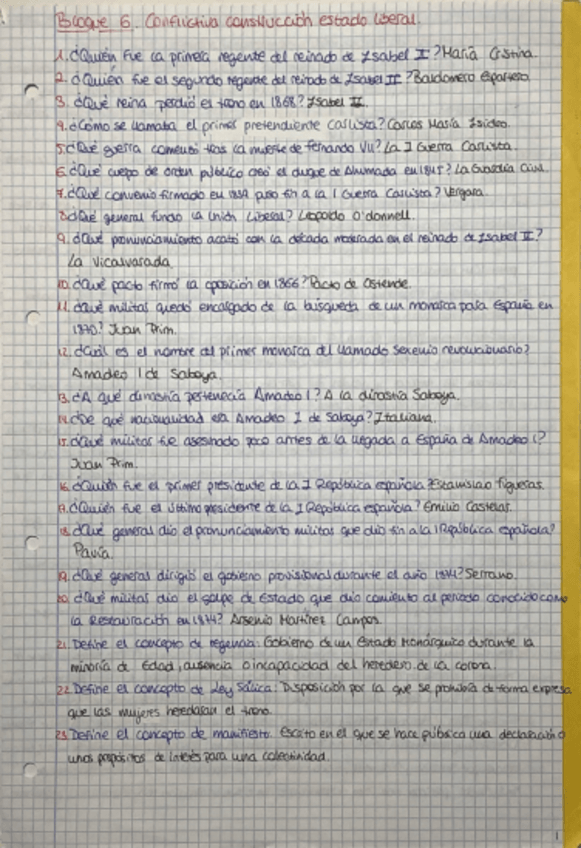 Bloque 6. Conflictiva construcción estado liberal.
1. ¿Quién fue la primera regente del reinado de Isabel II? María Cristina.
2. ¿Quién fue el segundo regente del reinado de Isabel II? Baldomero Espartero.
3. ¿Qué reina perdió el trono en 1868? Isabel II.
4. ¿Cómo se llamaba el primer pretendiente Carlista? Carlos María Isidro.
5. ¿Qué guerra comenzó tras la muerte de Fernando VII? La I Guerra Carlista.
6. ¿Qué cuerpo de orden público creó el duque de Ahumada en 1845? La Guardia Civil.
7. ¿Qué convenio firmado en 1839 puso fin a la I Guerra Carlista? Vergara.
8. ¿Qué general fundó la Unión Liberal? Leopoldo O'donnell.
9. ¿Qué pronunciamiento acabó con la década moderada en el reinado de Isabel II?
La Vicalvarada
10. ¿Qué pacto firmó la oposición en 1866? Pacto de Ostende.
11. ¿Qué militar quedó encargado de la búsqueda de un monarca para España en
1870? Juan Prim.
12. ¿Cuál es el nombre del primer monarca del llamado Sexenio revolucionario?
Amadeo I de Saboya.
13. ¿A qué dinastía pertenecía Amadeo I? A la dinastía Saboya.
14. ¿De qué nacionalidad era Amadeo I de Saboya? Italiana.
15. ¿Qué militar fue asesinado poco antes de la llegada a España de Amadeo I?
Juan Prim.
16. ¿Quién fue el primer presidente de la I República española? Estanislao Figueras.
17. ¿Quién fue el último presidente de la I República española? Emilio Castelar.
18. ¿Qué general dio el pronunciamiento militar que dio fin a la I República española?
Pavía.
19. ¿Qué general dirigió el gobierno provisional durante el año 1874? Serrano.
20. ¿Qué militar dio el golpe de Estado que dio comienzo al periodo conocido como
la Restauración en 1874? Arsenio Martínez Campos.
21. Define el concepto de regencia: Gobierno de un Estado Monárquico durante la
minoría de Edad, ausencia o incapacidad del heredero de la corona.
22. Define el concepto de Ley Sálica: Disposición por la que se prohibía de forma expresa
que las mujeres heredaran el trono.
23. Define el concepto de manifiesto. Escrito en el que se hace pública una declaración o
unos propósitos de interés para una colectividad.
1